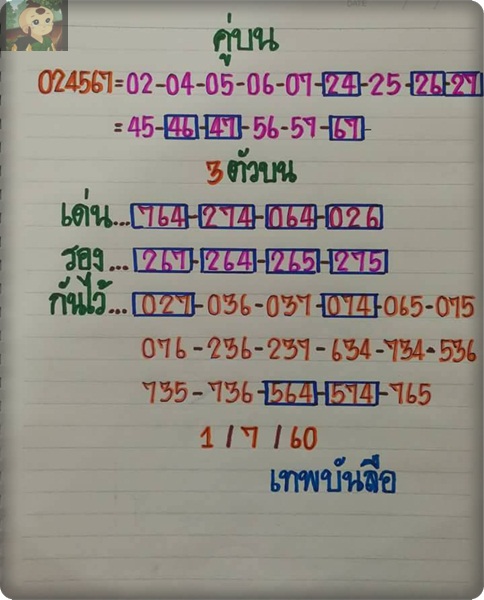 คู่บน
024567=02-04-05-06-07-24-25-26-27
=45-46-47-56-57-67-
3 ตัวบน
เด่น...764-274-064-026
รอง...267-264-265-275
กันไว้...027-036-037-074-065-075
076-236-237-634-734-536
735-736-564-574-765
1/7/60
เทพบันลือ